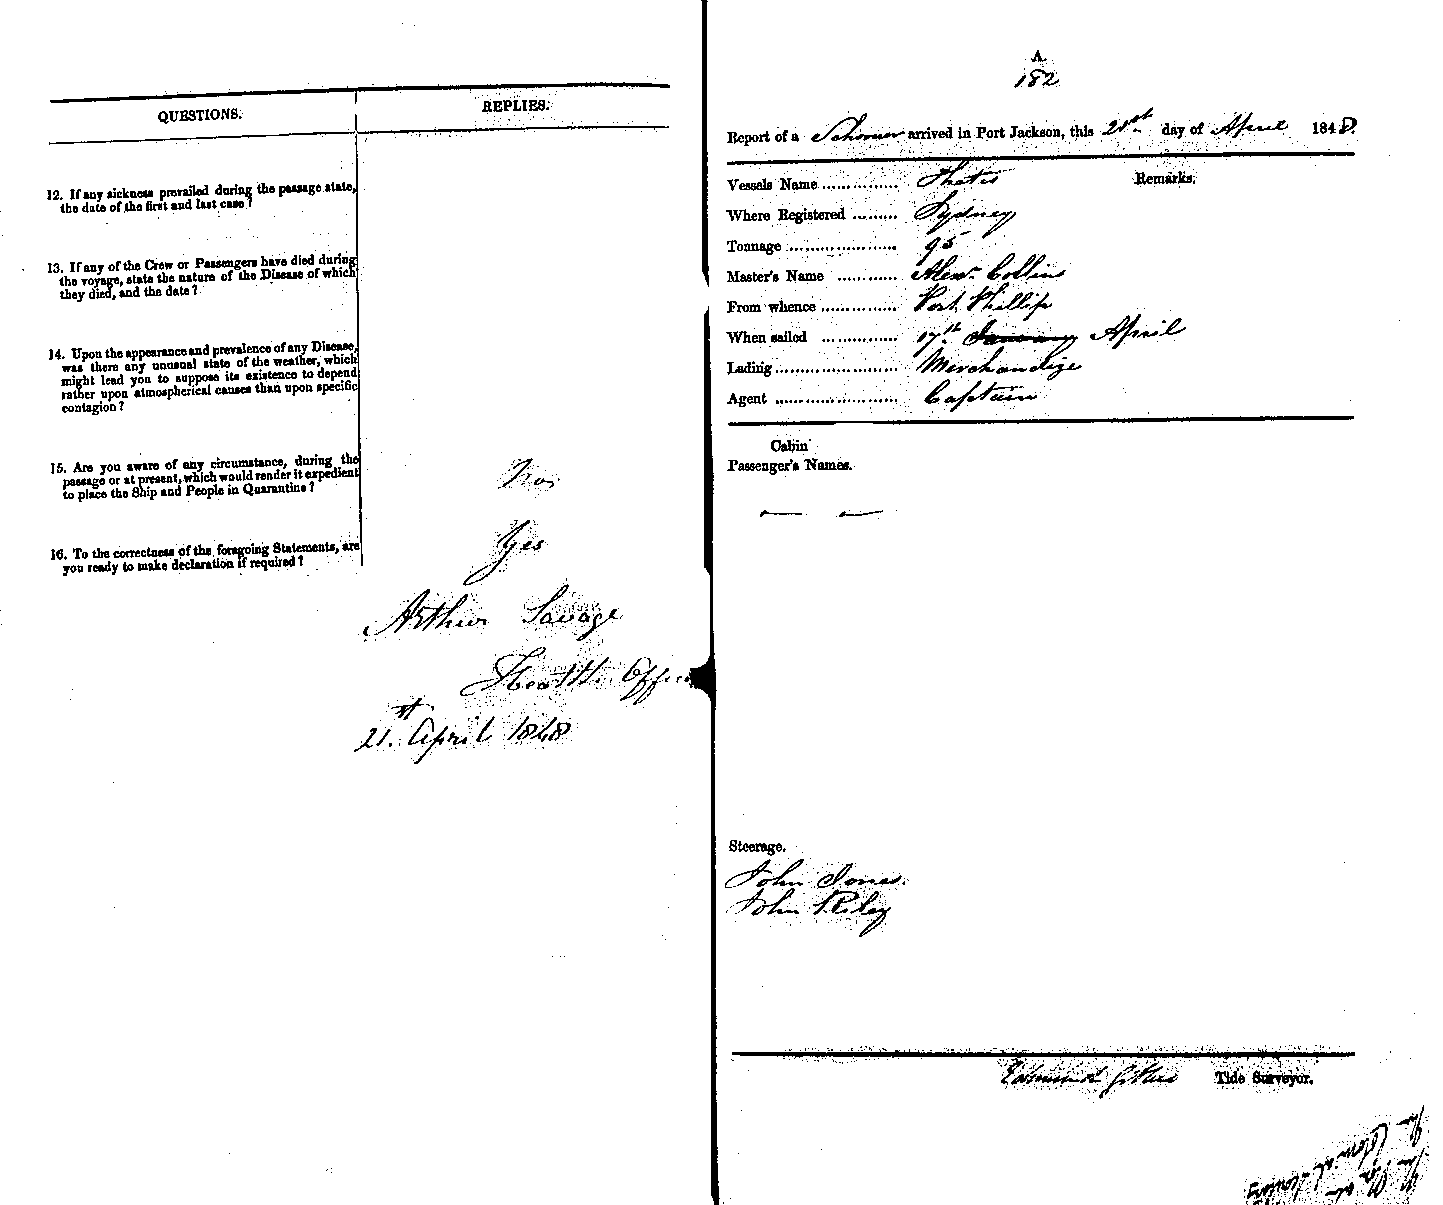 QUESTIONS.
REPLIES.
12. If any sickness prevailed during the passage state,
the date of the first and last case?
13. If any of the Crew or Passengers have died during
the voyage, state the nature of the Disease of which
they died, and the date?
14. Upon the appearance and prevalence of any Disease,
was there any unusual state of the weather, which
might lead you to suppose its existence to depend
rather upon atmospherical causes than upon specific
contagion?
15. Are you aware of any circumstance, during the
passage or at present, which would render it expedient
to place the Ship and People in Quarantine?
No
16. To the correctness of the foregoing Statements, are
you ready to make declaration if required?
Yes
Arthur Savage
Health Officer
21st April 1848
A
182
Report of a Schooner arrived in Port Jackson, this 21st day of April 1848.
Vessels Name .............. Thetis
Remarks.
Where Registered ......... Sydney
Tonnage ..................... 95
Master's Name ........... Alexr. Collins
From whence .............. Port Phillip
When sailed .............. 17th January April
Lading....................... Merchandize
Agent ....................... Captain
Cabin
Passenger's Names.
— —
Steerage.
John Jones
John Riley
Edmund Tide Surveyor.